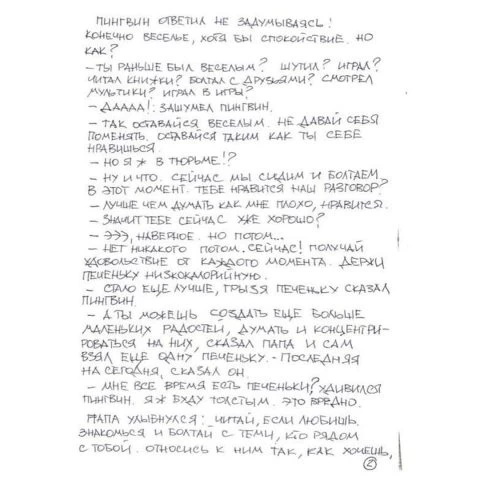 ПИНГВИН ОТВЕТИЛ НЕ ЗАДУМЫВАЯСЬ!
КОНЕЧНО ВЕСЕЛЬЕ, ХОТЯ БЫ СПОКОЙСТВИЕ. НО
КАК?
- ТЫ РАНЬШЕ БЫЛ ВЕСЕЛЫМ? ШУТИЛ? ИГРАЛ?
ЧИТАЛ КНИЖКИ? БОЛТАЛ С ДРУЗЬЯМИ? СМОТРЕЛ
МУЛЬТИКИ? ИГРАЛ В ИГРЫ?
- ДАААА!: ЗАШУМЕЛ ПИНГВИН.
- ТАК ОСТАВАЙСЯ ВЕСЕЛЫМ. НЕ ДАВАЙ СЕБЯ
ПОМЕНЯТЬ. ОСТАВАЙСЯ ТАКИМ КАК ТЫ СЕБЕ
НРАВИШЬСЯ.
- НО Я Ж В ТЮРЬМЕ!?
- НУ И ЧТО. СЕЙЧАС МЫ СИДИМ И БОЛТАЕМ.
В ЭТОТ МОМЕНТ. ТЕБЕ НРАВИТСЯ НАШ РАЗГОВОР?
- ЛУЧШЕ ЧЕМ ДУМАТЬ КАК МНЕ ПЛОХО, НРАВИТСЯ.
- ЗНАЧИТ ТЕБЕ СЕЙЧАС УЖЕ ХОРОШО?
- ЭЭЭ, НАВЕРНОЕ. НО ПОТОМ...
- НЕТ НИКАКОГО ПОТОМ. СЕЙЧАС! ПОЛУЧАЙ
УДОВОЛЬСТВИЕ ОТ КАЖДОГО МОМЕНТА. ДЕРЖИ
ПЕЧЕНЬКУ НИЗКОКАЛОРИЙНУЮ.
- СТАЛО ЕЩЕ ЛУЧШЕ, ГРЫЗЯ ПЕЧЕНЬКУ СКАЗАЛ
ПИНГВИН.
- А ТЫ МОЖЕШЬ СОЗДАТЬ ЕЩЕ БОЛЬШЕ
МАЛЕНЬКИХ РАДОСТЕЙ, ДУМАТЬ И КОНЦЕНТРИ-
РОВАТЬСЯ НА НИХ, СКАЗАЛ ПАПА И САМ
ВЗЯЛ ЕЩЕ ОДНУ ПЕЧЕНЬКУ. - ПОСЛЕДНЯЯ
НА СЕГОДНЯ, СКАЗАЛ ОН.
- МНЕ ВСЕ ВРЕМЯ ЕСТЬ ПЕЧЕНЬКИ? УДИВИЛСЯ
ПИНГВИН. Я Ж БУДУ ТОЛСТЫМ. ЭТО ВРЕДНО.
ПАПА УЛЫБНУЛСЯ: ЧИТАЙ, ЕСЛИ ЛЮБИШЬ.
ЗНАКОМЬСЯ И БОЛТАЙ С ТЕМИ, КТО РЯДОМ
С ТОБОЙ. ОТНОСИСЬ К НИМ ТАК, КАК ХОЧЕШЬ,
2